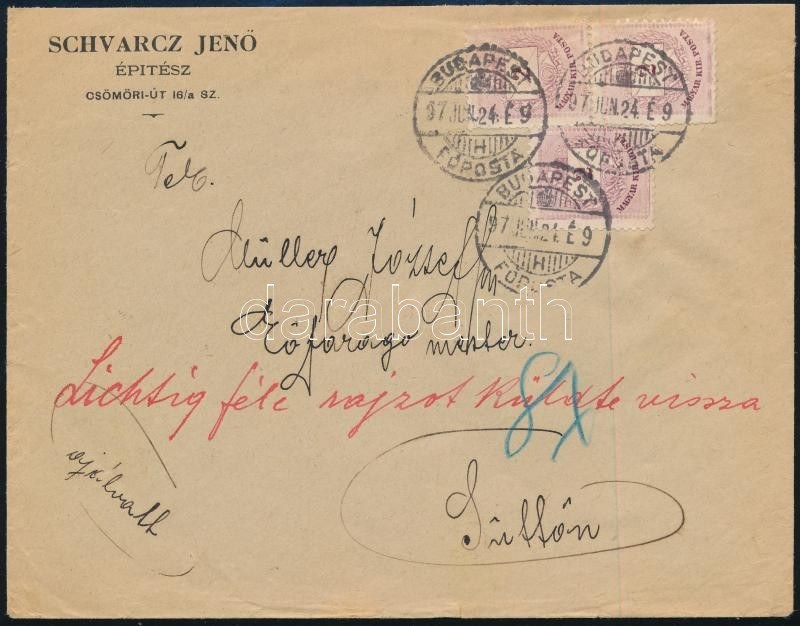 SCHVARCZ JENŐ
ÉPITÉSZ
CSÖMÖRI-ÚT 16/a SZ.
MAGYAR KIR. POSTA
MAGYAR KIR. POSTA
MAGYAR KIR. POSTA
BUDAPEST
97 JUN. 24. É 9
H
FŐPOSTA
BUDAPEST
97 JUN. 24 É 9
FŐPOSTA
BUDAPEST
97 JUN. 24. É 9
H
FŐPOSTA
Tek.
Müller József
Kőfaragó mester.
darabanth
Lichtig féle rajzot küldte vissza
8x
ajánlott
Süttőn